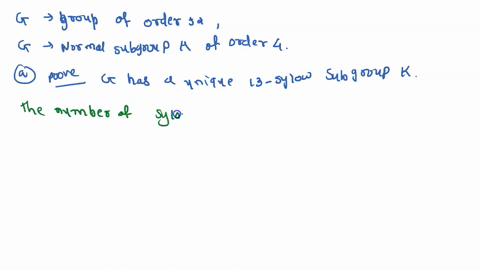 G → group of order 52,
G → Normal subgroup H of order 4.
(a) prove G has a unique 13-sylow subgroup K.
the number of sylo